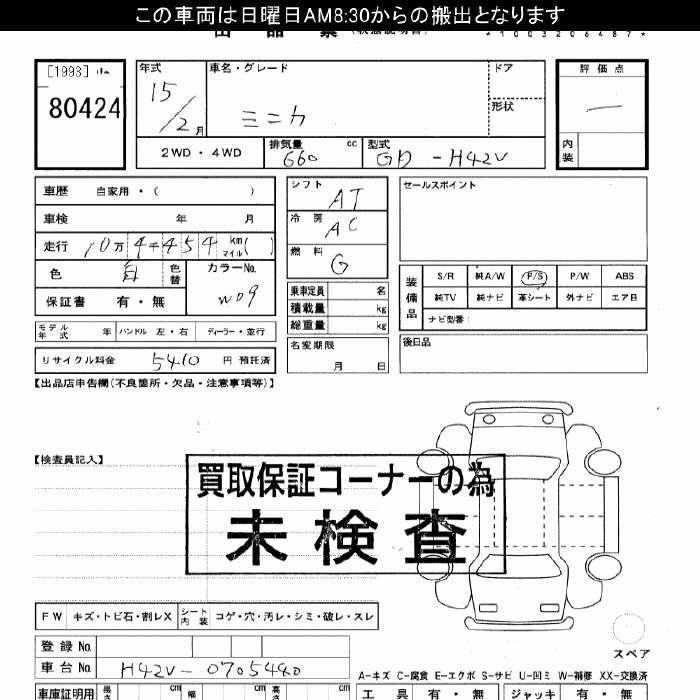 この車両は日曜日AM8:30からの搬出となります
出 品 票 (状態説明書) *1003206487*
[1993]
80424
年式 15/2月
車名・グレード ミニカ
ドア
形状
評価点 —
内装
2WD・4WD
排気量 660 cc
型式 GD-H42V
車歴 自家用・( )
車検 年 月
走行 10万4千454 km マイル( )
色 白 色替
カラーNo. W09
保証書 有・無
シフト AT
冷房 AC
燃料 G
乗車定員 名
積載量 kg
総重量 kg
名変期限 月 日
セールスポイント
装備品 S/R 純A/W P/S P/W ABS
純TV 純ナビ 革シート 外ナビ エアB
ナビ型番:
後日品
モデル年式 年 ハンドル 左・右 ディーラー・並行
リサイクル料金 5410 円 預託済
【出品店申告欄(不良箇所・欠品・注意事項等)】
【検査員記入】
買取保証コーナーの為
未検査
FW キズ・トビ石・割レX シート内装 コゲ・穴・汚レ・シミ・破レ・スレ
スペア
登録No.
車台No. H42V-0705440
A-キズ C-腐食 E-エクボ S-サビ U-凹ミ W-補修 XX-交換済
車庫証明用 長さ cm 幅 cm 高さ cm
工具 有・無 ジャッキ 有・無